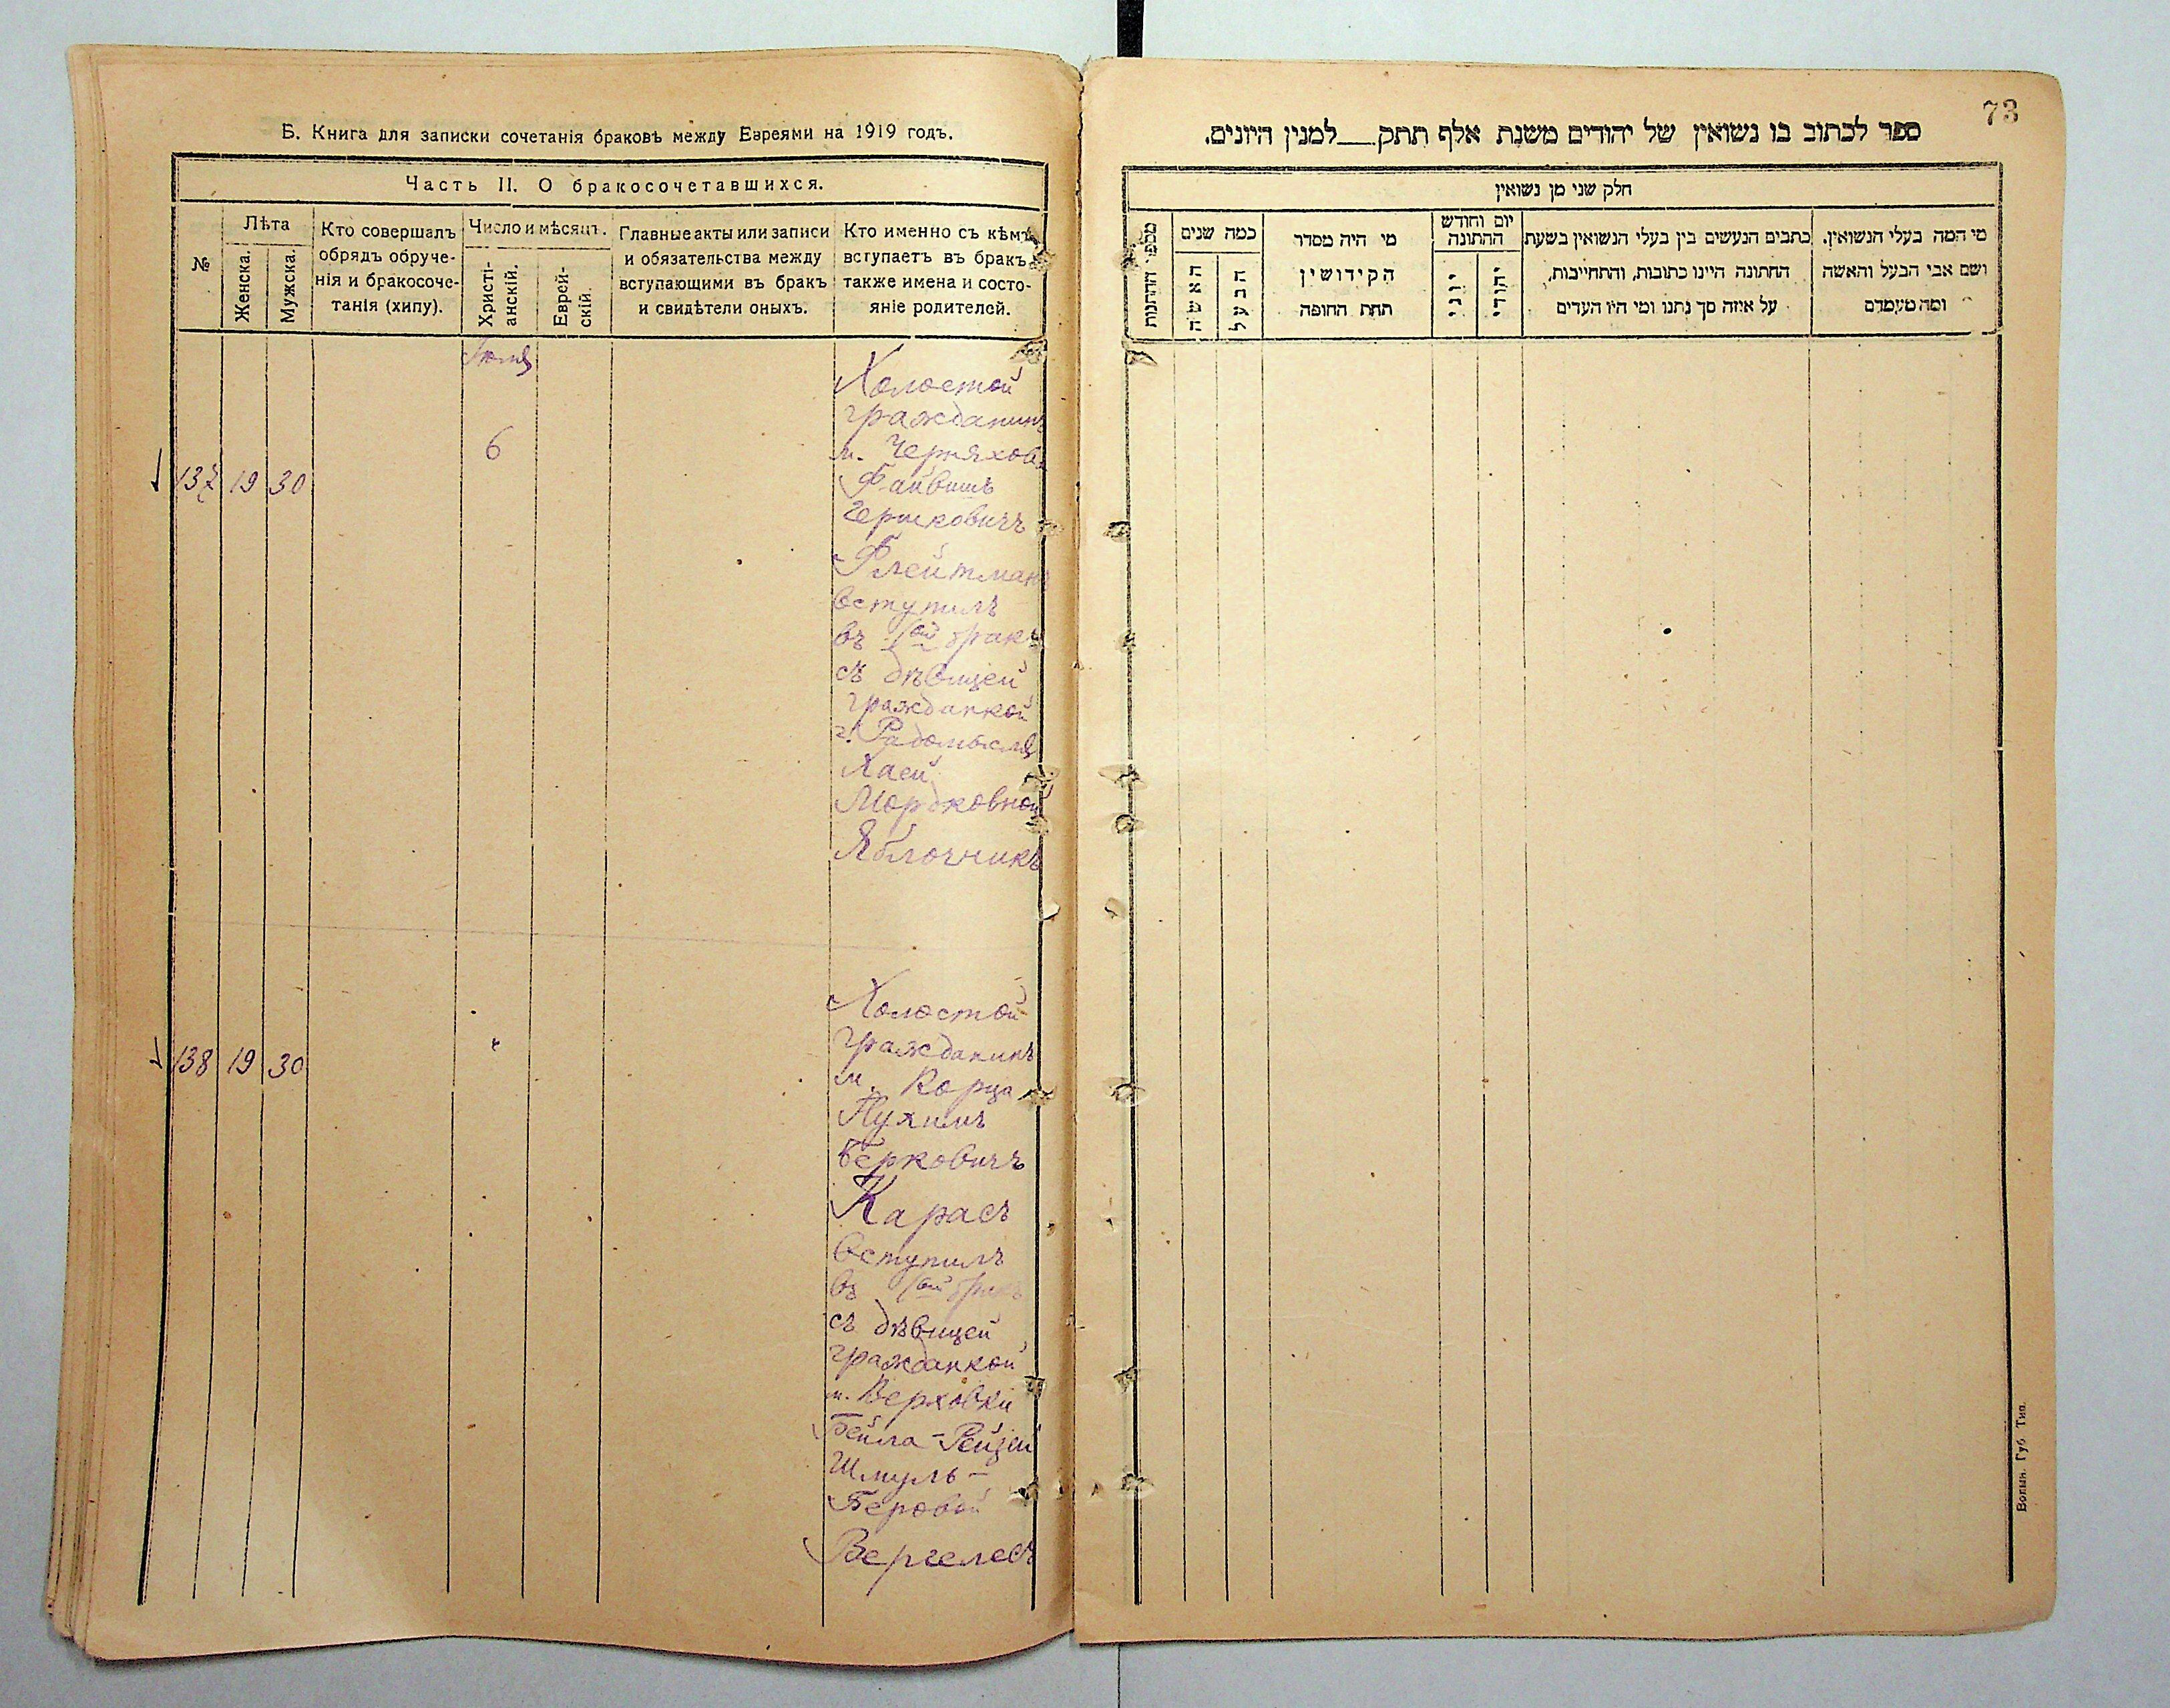 Б. Книга для записки сочетанія браковъ между Евреями на 1919 годъ.
Часть II. О бракосочетавшихся.
№
Лѣта
Женска.
Мужска.
Кто совершалъ
обрядъ обруче-
нія и бракосоче-
танія (хипу).
Число и мѣсяцъ.
Христі-
анскій.
Еврей-
скій.
Главные акты или записи
и обязательства между
вступающими въ бракъ
и свидѣтели оныхъ.
Кто именно съ кѣмъ
вступаетъ въ бракъ,
также имена и состо-
яніе родителей.
137
19
30
6
Холостой
гражданинъ
м. Черняхова
Файвишъ
Гершковичъ
Флейтманъ
вступилъ
въ 1ый бракъ
съ дѣвицей
гражданкой
г. Радомысля
Хаей
Мордковной
Яблочникъ
138
19
30
Холостой
гражданинъ
м. Корца
Нухимъ
Берковичъ
Карасъ
вступилъ
въ 1ый бракъ
съ дѣвицей
гражданкой
м. Верховки
Бейла-Рейзей
Шмуль-
Беровой
Вергелесъ
73
ספר לכתוב בו נשואין של יהודים משנת אלף תתק__למנין היונים.
חלק שני מן נשואין
מספר החתונות
כמה שנים
האשה
הבעל
מי היה מסדר
הקידושין
תחת החופה
יום וחודש
החתונה
יוני
יהודי
כתבים הנעשים בין בעלי הנשואין בשעת
החתונה היינו כתובות, והתחייבות,
על איזה סך נתנו ומי היו העדים
מי המה בעלי הנשואין,
ושם אבי הבעל והאשה
ומה מעמדם
Волын. Губ. Тип.